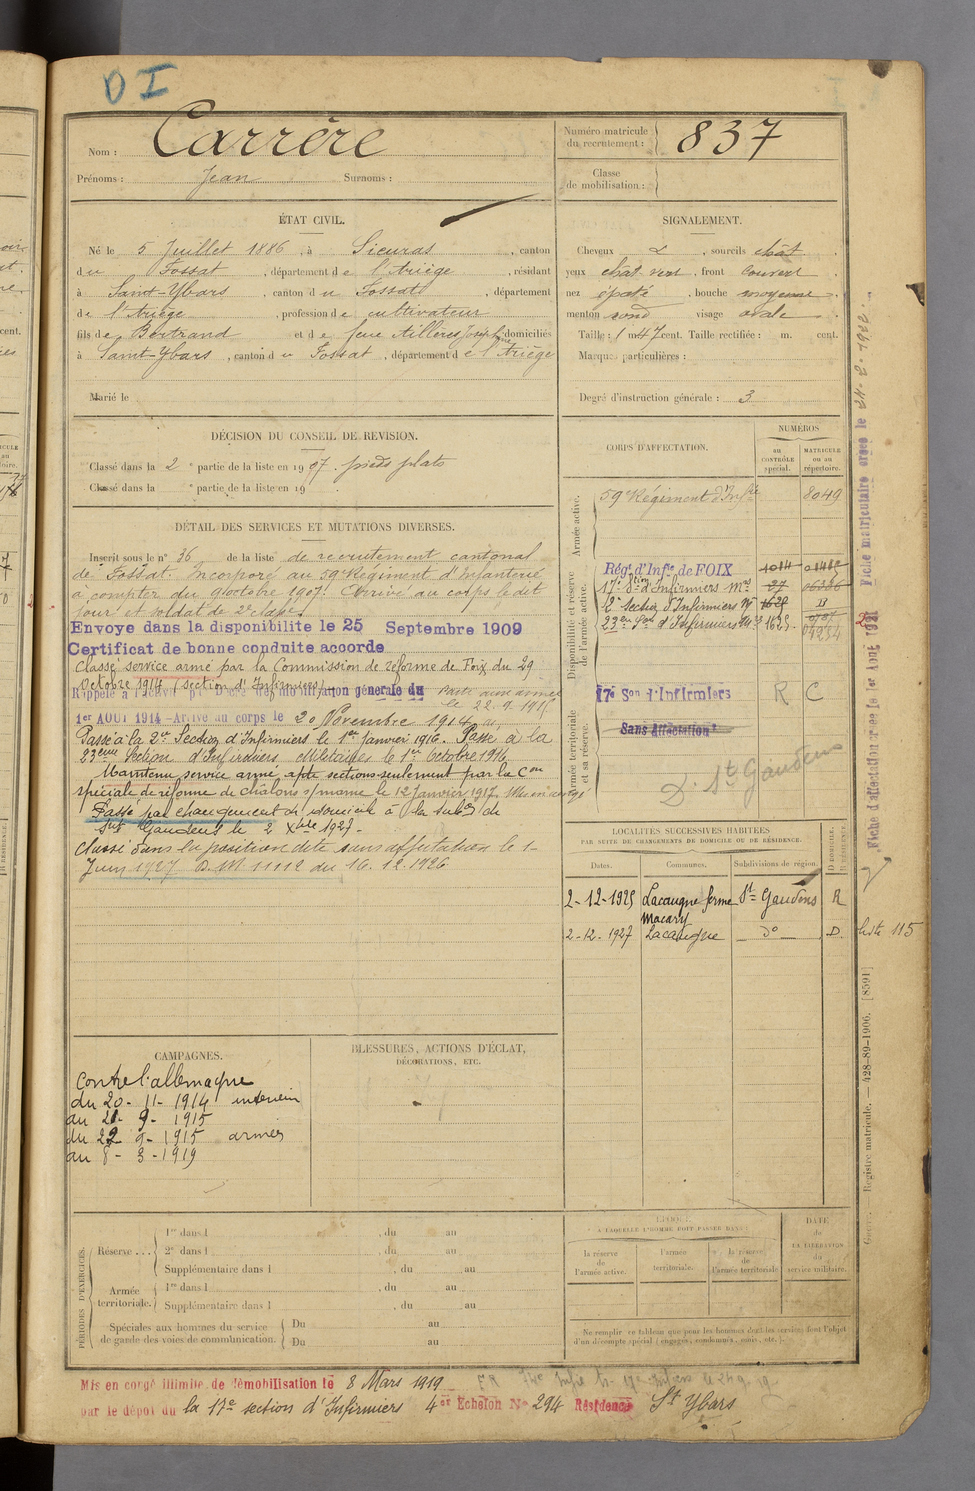 D I
Nom : Carrère
Prénoms : Jean Surnoms :
Numéro matricule du recrutement : 837
Classe de mobilisation :
ÉTAT CIVIL.
Né le 5 Juillet 1886, à Sieuras, canton
du Fossat, département de l'Ariège, résidant
à Saint-Ybars, canton du Fossat, département
de l'Ariège, profession de cultivateur
fils de Bertrand et de feue Aillères Josephine domiciliés
à Saint-Ybars, canton du Fossat, département de l'Ariège
Marié le
SIGNALEMENT.
Cheveux , sourcils chât
yeux chât vert, front couvert
nez épaté, bouche moyenne
menton rond visage ovale
Taille : 1 m 47 cent. Taille rectifiée : m. cent.
Marques particulières :
Degré d'instruction générale : 3
DÉCISION DU CONSEIL DE REVISION.
Classé dans la 2e partie de la liste en 1907. pieds plats
Classé dans la e partie de la liste en 19 .
DÉTAIL DES SERVICES ET MUTATIONS DIVERSES.
Inscrit sous le n° 36 de la liste de recrutement cantonal
de Fossat. Incorporé au 59e Régiment d'Infanterie
à compter du 9 octobre 1907. Arrivé au corps le dit
jour et soldat de 2e classe.
Envoye dans la disponibilite le 25 Septembre 1909
Certificat de bonne conduite accorde
Classé service armé par la Commission de réforme de Foix du 29
Octobre 1914 (section d'Infirmiers)
Rappelé à l'activité mobilisation générale du
1er AOUT 1914 - Arrivé au corps le 20 Novembre 1914.
Parti aux armées
le 22.9.1915
Passé à la 2me Section d'Infirmiers le 1er Janvier 1916. Passé à la
23ème Section d'Infirmiers Militaires le 1er Octobre 1916.
Maintenu service armé, apte sections seulement par la Con
spéciale de réforme de Châlons s/marne le 12 Janvier 1917.
Passé par changement de domicile à la Subd de
St Gaudens le 2 Xbre 1927-
Classé dans la position dite sans affectation le 1-
Juin 1927 D.M 11112 du 16.12.1926
CORPS D'AFFECTATION.
NUMÉROS
au CONTRÔLE spécial.
MATRICULE ou au répertoire.
Armée active.
59e Régiment d'Infie 8049
Disponibilité et réserve de l'armée active.
Régt d'Infie de FOIX 1014
17e Stion d'Infirmiers Mres 27
2e Section d'Infirmiers
23eme Son d'Infirmiers 1625
Armée territoriale et sa réserve.
17e Son d'Infirmiers R C
Sans Affectation
D. St Gaudens
LOCALITÉS SUCCESSIVES HABITÉES
PAR SUITE DE CHANGEMENTS DE DOMICILE OU DE RÉSIDENCE.
Dates. Communes. Subdivisions de région. D DOMICILE. R RÉSIDENCE.
2-12-1925 Lacaugne ferme Macary St Gaudens R
2-12-1927 Lacaugne do D.
liste 115
Fiche matriculaire créée le 24-2-1922
Fiche d'affectation créée le 1er Aout 1921
Registre matricule. — 428-89-1906. [8591]
CAMPAGNES.
contre l'allemagne
du 20-11-1914 intérieur
au 21-9-1915
du 22-9-1915 armées
au 8-3-1919
BLESSURES, ACTIONS D'ÉCLAT,
DÉCORATIONS, ETC.
PÉRIODES D'EXERCICES.
Réserve . . .
1re dans l , du au
2e dans l , du au
Supplémentaire dans l , du au
Armée territoriale.
1re dans l , du au
Supplémentaire dans l , du au
Spéciales aux hommes du service de garde des voies de communication.
Du au
Du au
ÉPOQUE
À LAQUELLE L'HOMME DOIT PASSER DANS :
la réserve de l'armée active.
l'armée territoriale.
la réserve de l'armée territoriale
DATE de LA LIBÉRATION du service militaire.
Ne remplir ce tableau que pour les hommes dont les services font l'objet
d'un décompte spécial (engagés, condamnés, omis, etc.).
Mis en congé illimité de démobilisation le 8 Mars 1919
par le dépôt du la 17e section d'Infirmiers 4er Echelon No 294 Résidence St Ybars